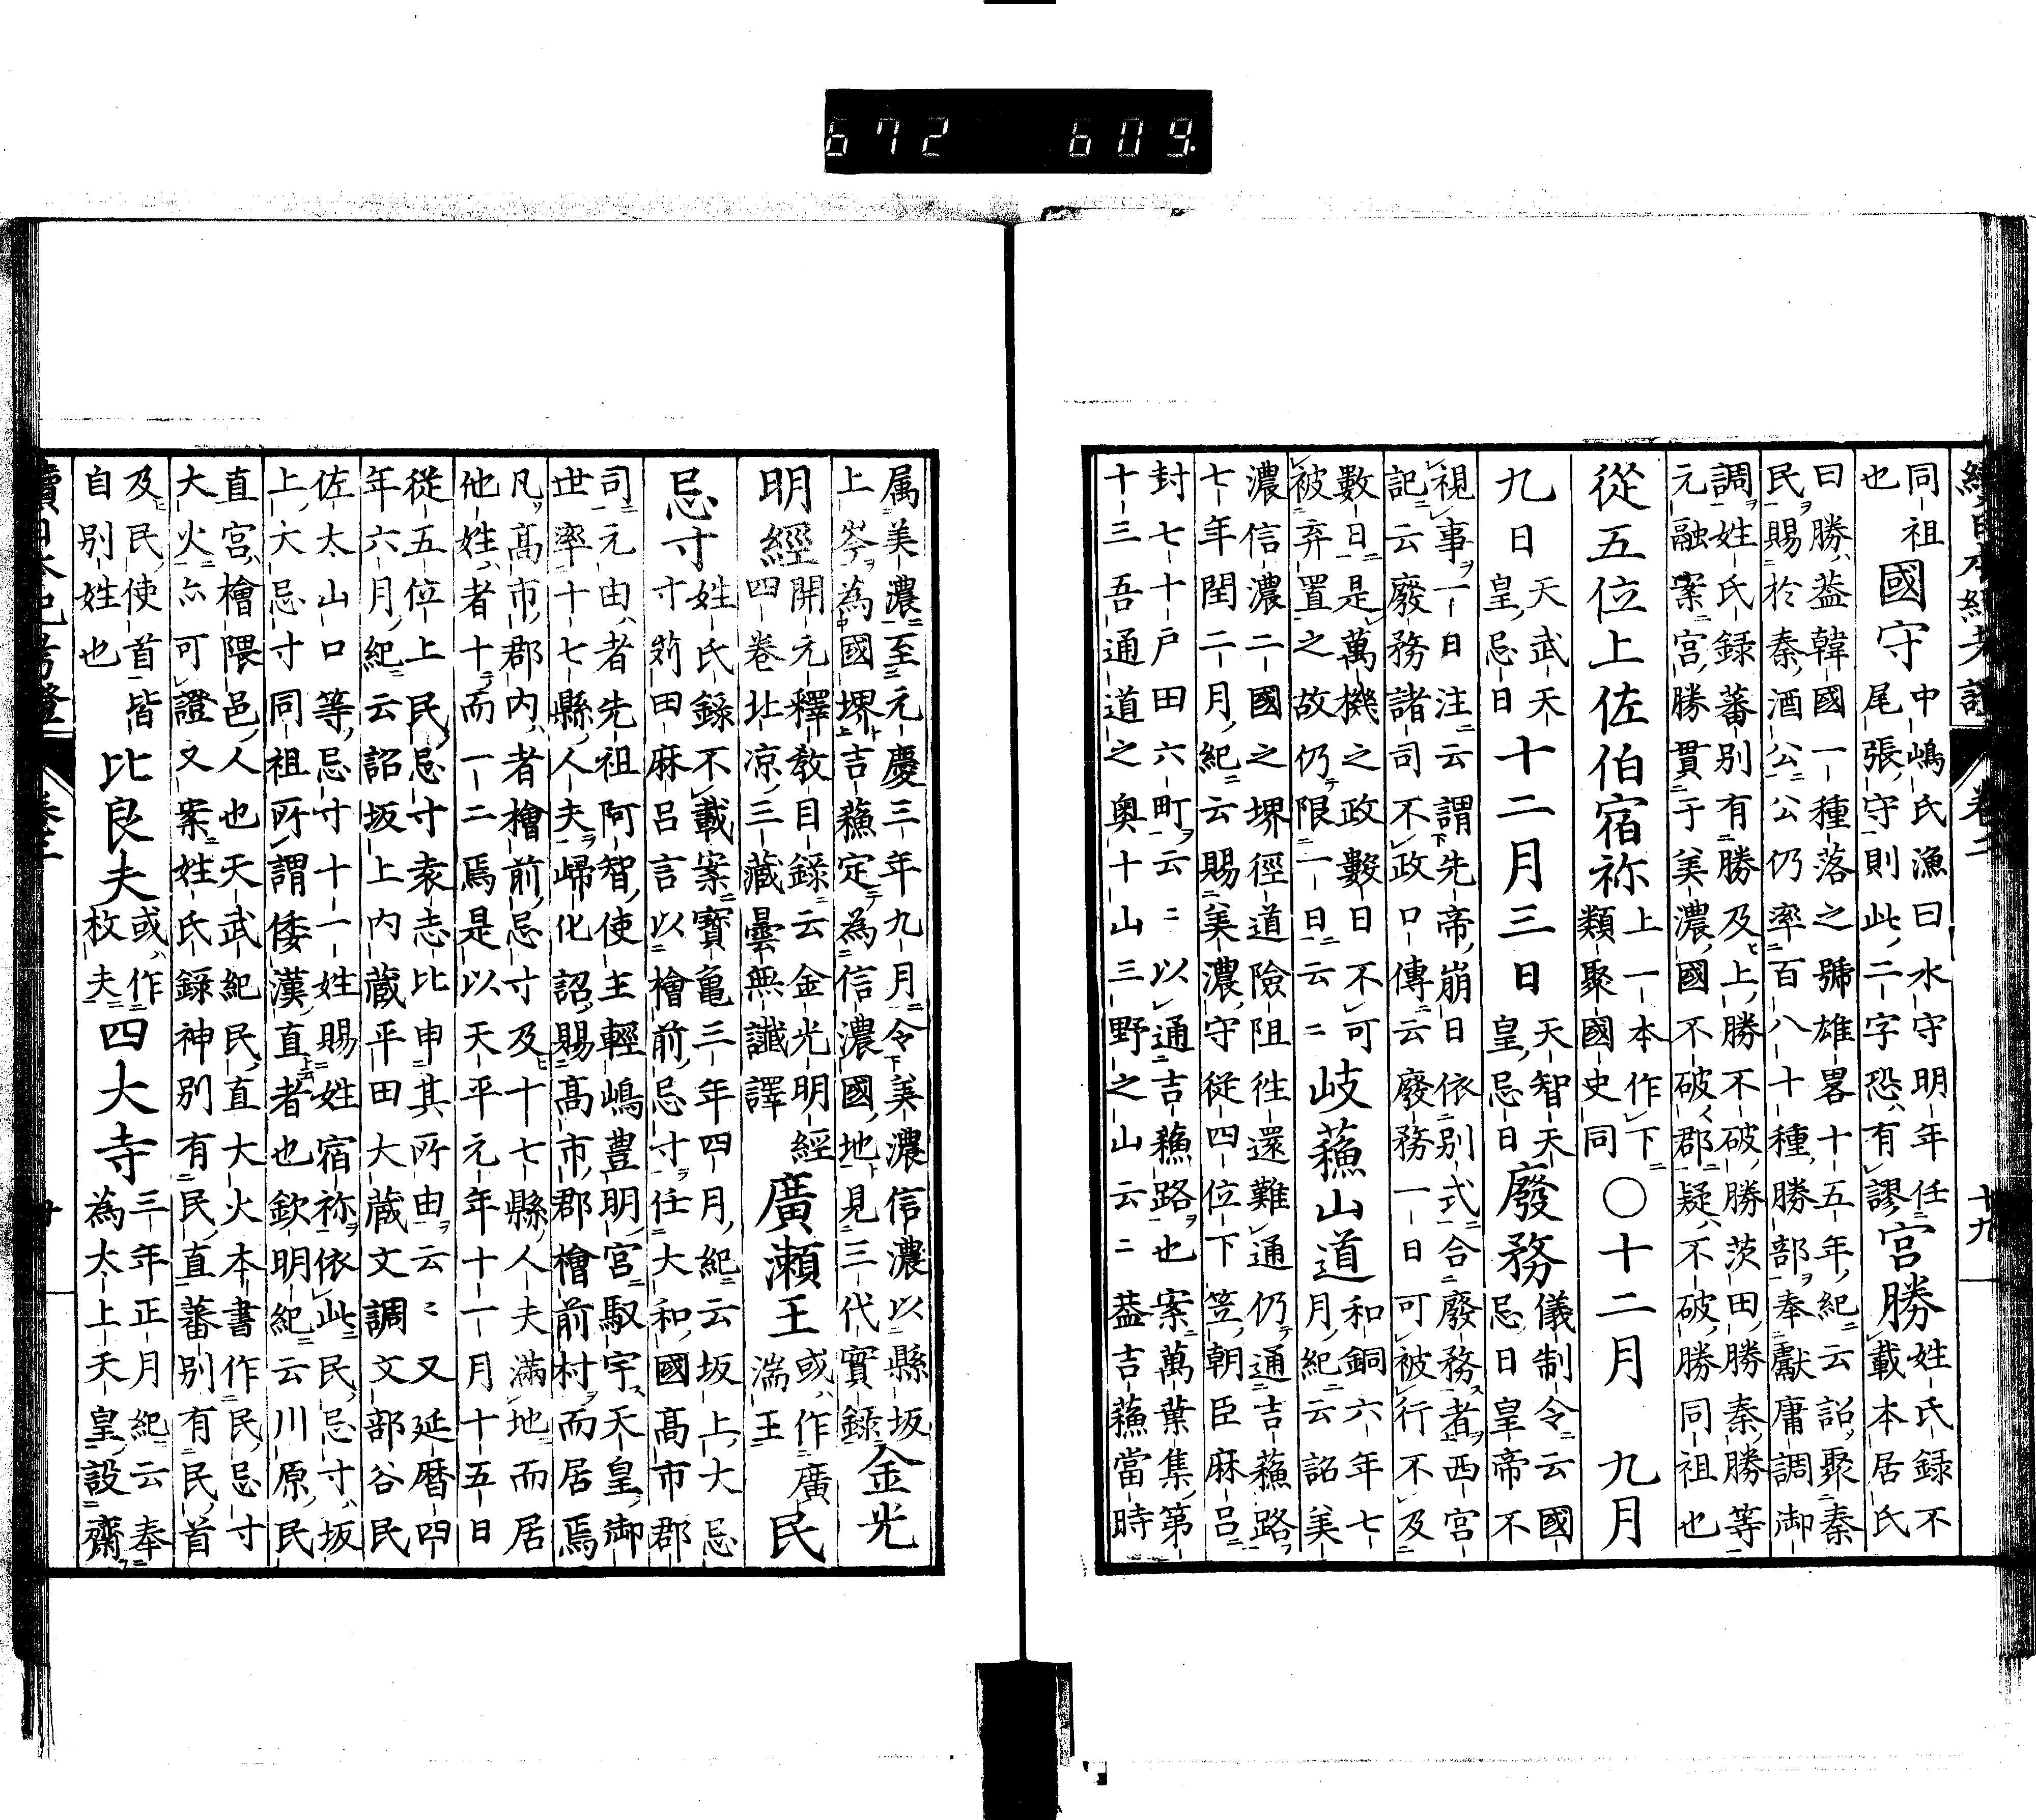 續日本紀考證 卷二 十九
同祖
也
國守
中嶋氏漁曰水守明年任
尾張守則此二字恐有謬
宮勝
姓氏録不
載本居氏
曰勝葢韓國一種落之號雄畧十五年紀云詔聚秦
民賜於秦酒公公仍率百八十種勝部奉獻庸調御
調姓氏録蕃别有勝及上勝不破勝茨田勝秦勝等
元融案宮勝貫于美濃國不破郡疑不破勝同祖也
從五位上佐伯宿祢
上一本作下
類聚國史同
〇十二月 九月
九日
天武天
皇忌日
十二月三日
天智天
皇忌日
廢務
儀制令云國
忌日皇帝不
視事一日注云謂先帝崩日依别式合廢務者西宮
記云廢務諸司不政口傳云廢務一日可被行不及
數日是萬機之政數日不可
被弃置之故仍限一日云〻
岐蘓山道
和銅六年七
月紀云詔美
濃信濃二國之堺徑道險阻徃還難通仍通吉蘓路
七年閏二月紀云賜美濃守從四位下笠朝臣麻呂
封七十戸田六町云〻以通吉蘓路也案萬葉集第
十三吾通道之奥十山三野之山云〻葢吉蘓當時
属美濃至元慶三年九月令美濃信濃以縣坂
上岑為國堺吉蘓定為信濃國地見三代實録
金光
明經
開元釋教目録云金光明經
四卷北凉三藏曇無讖譯
廣瀬王
或作廣
湍王
民
忌寸
姓氏録不載案寳亀三年四月紀云坂上大忌
寸苅田麻呂言以檜前忌寸任大和國髙市郡
司元由者先祖阿智使主輕嶋豊明宮馭宇天皇御
世率十七縣人夫歸化詔賜髙市郡檜前村而居焉
凡髙市郡内者檜前忌寸及十七縣人夫滿地而居
他姓者十而一二焉是以天平元年十一月十五日
從五位上民忌寸袁志比申其所由云〻又延暦四
年六月紀云詔坂上内蔵平田大蔵文調文部谷民
佐太山口等忌寸十一姓賜姓宿祢依此民忌寸坂
上大忌寸同祖所謂倭漢直者也欽明紀云川原民
直宮檜隈邑人也天武紀民直大火本書作民忌寸
大火亦可證又案姓氏録神别有民直蕃别有民首
及民使首皆
自别姓也
比良夫
或作
枚夫
四大寺
三年正月紀云奉
為太上天皇設齋
續日本紀考證 卷二
672 609